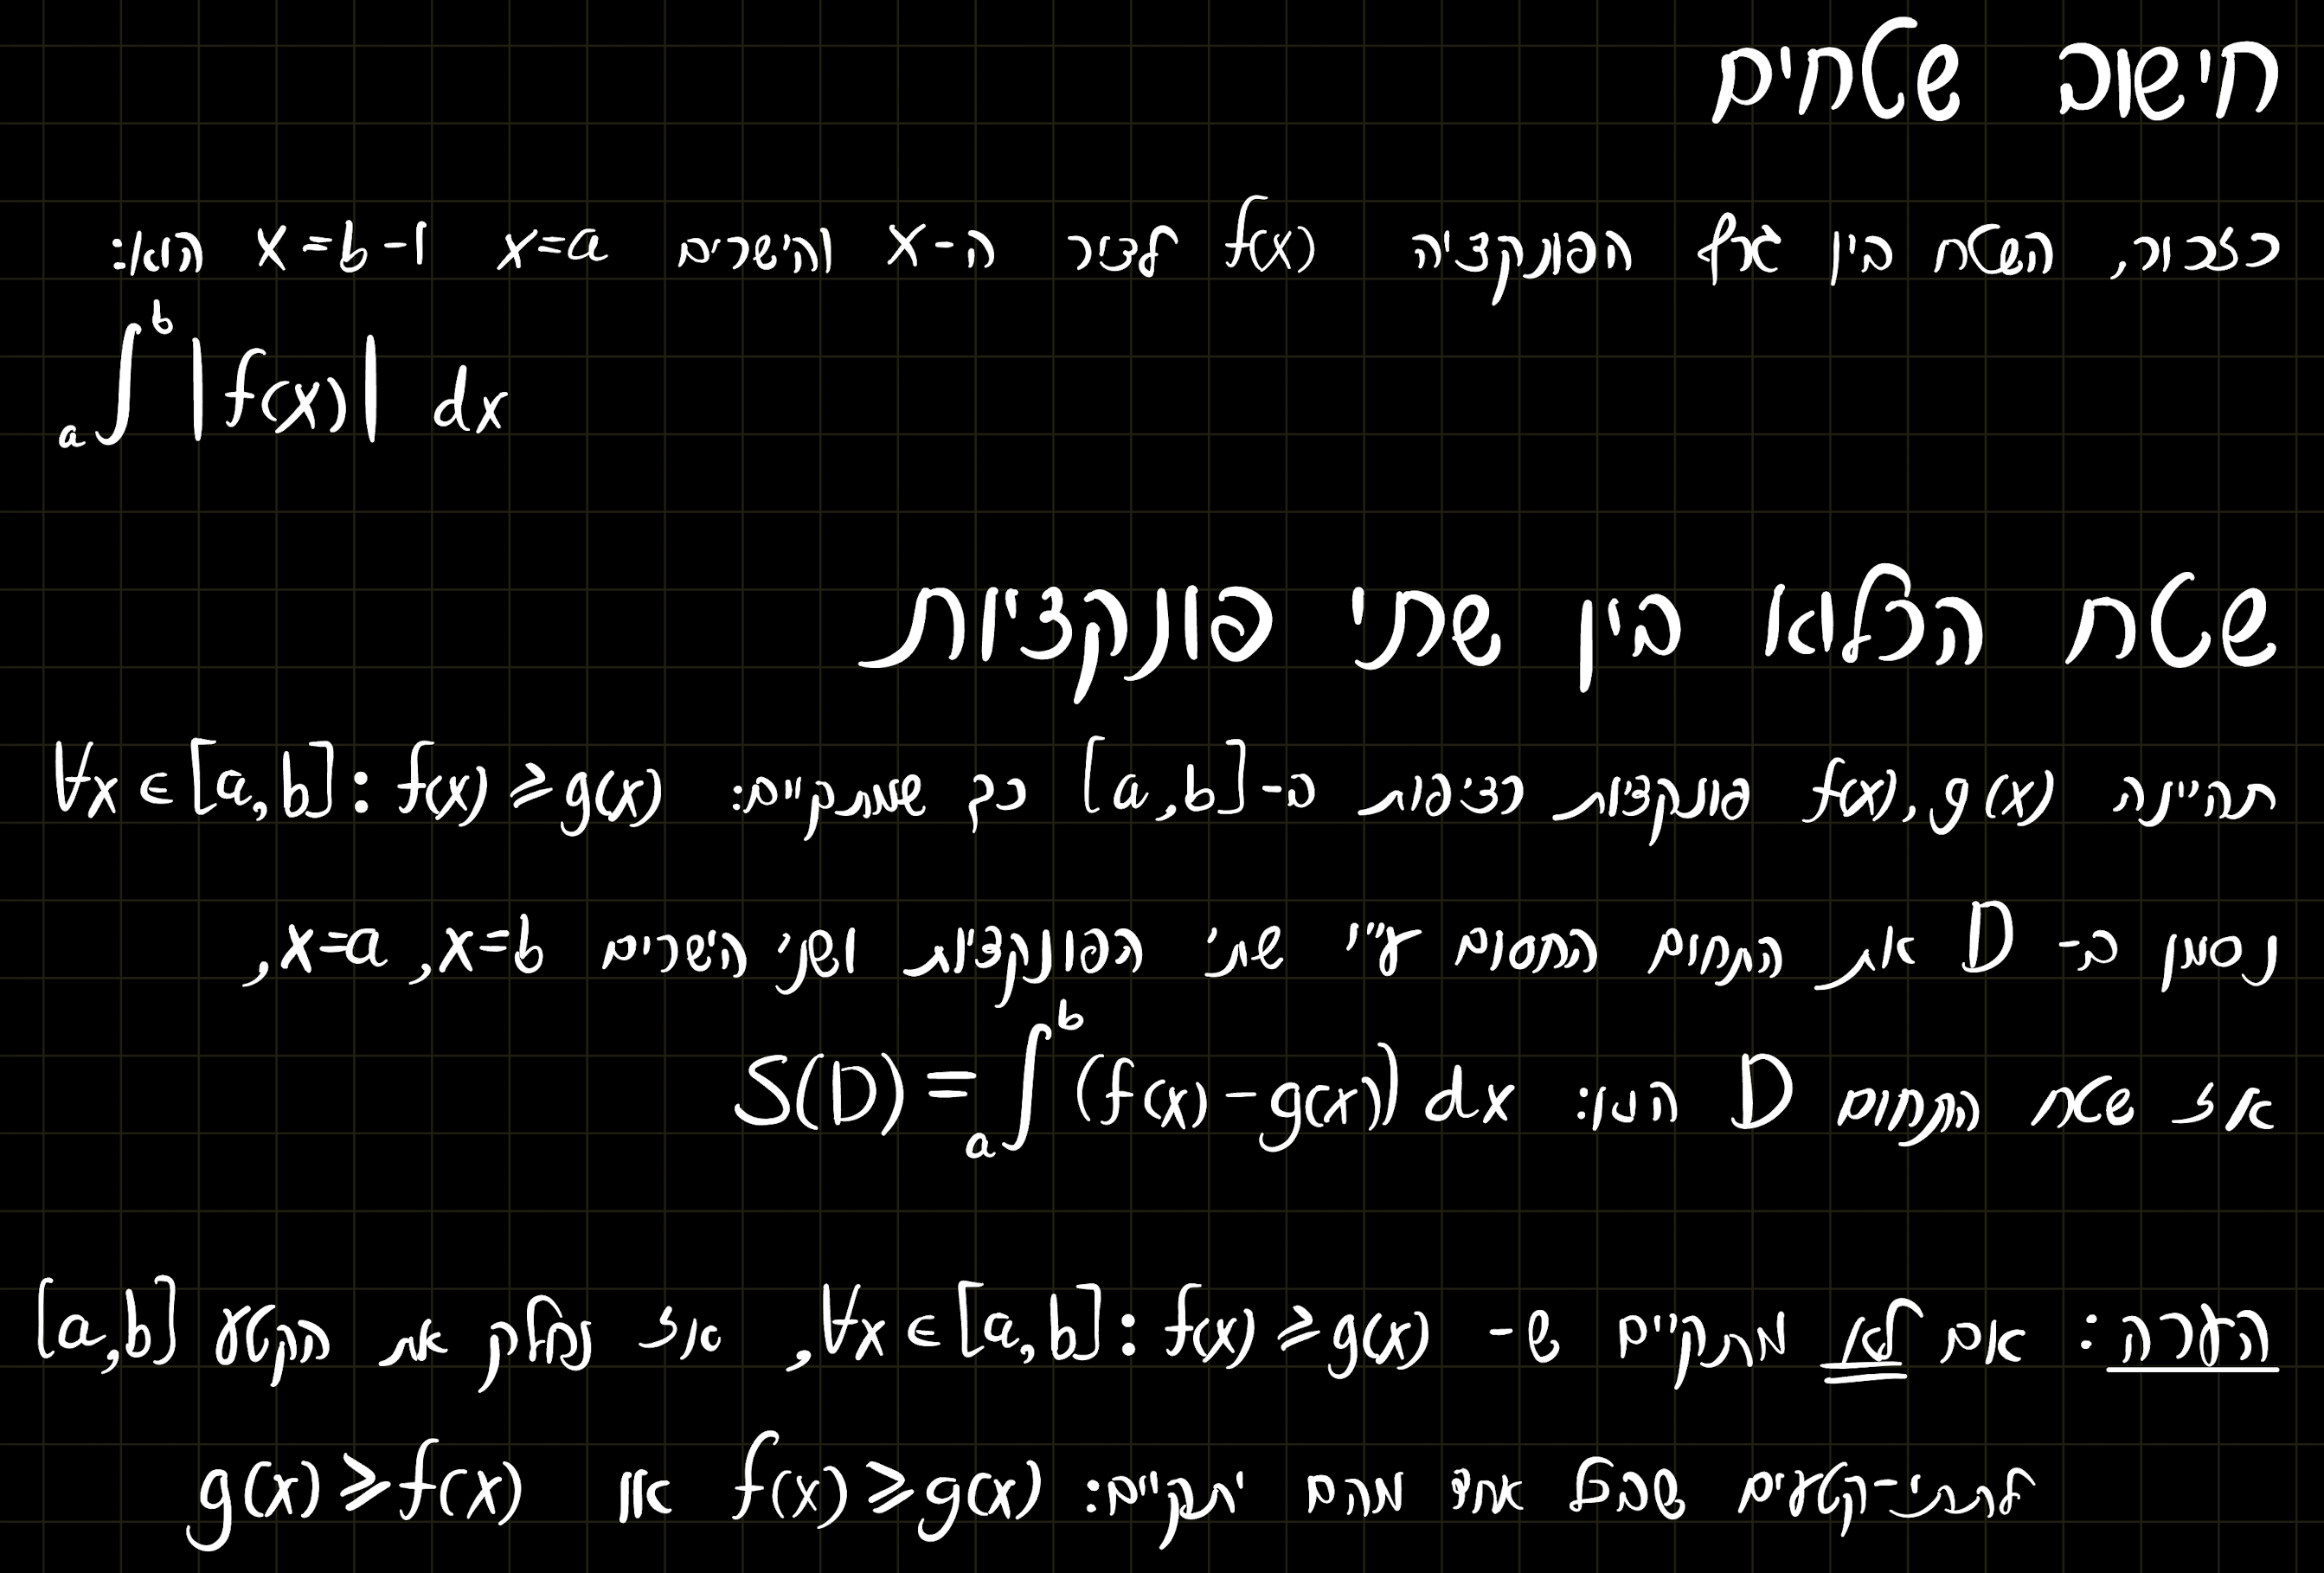 חישוב שטחים
כזכור, השטח בין גרף הפונקציה f(x) לציר ה-x והישרים x=a ו-x=b הוא:
∫ₐᵇ |f(x)| dx
שטח הכלוא בין שתי פונקציות
תהיינה f(x), g(x) פונקציות רציפות ב-[a,b] כך שמתקיים: ∀x∈[a,b]: f(x)⩾g(x)
נסמן ב- D את התחום החסום ע"י שתי הפונקציות ושני הישרים x=a, x=b,
אז שטח התחום D הינו: S(D) = ∫ₐᵇ (f(x)-g(x)) dx
הערה: אם לא מתקיים ש- ∀x∈[a,b]: f(x)⩾g(x), אז נחלק את הקטע [a,b]
לתתי-קטעים שבכל אחד מהם יתקיים: f(x)⩾g(x) או g(x)⩾f(x)